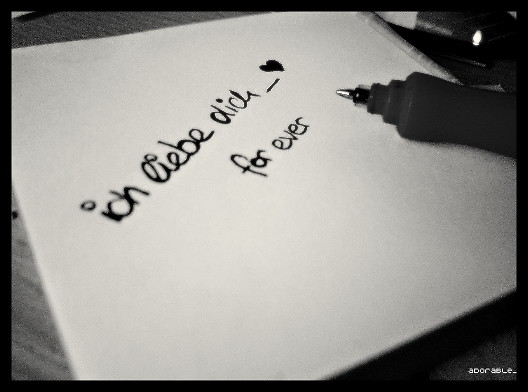 ich liebe dich_♥
for ever
ADORABLE_